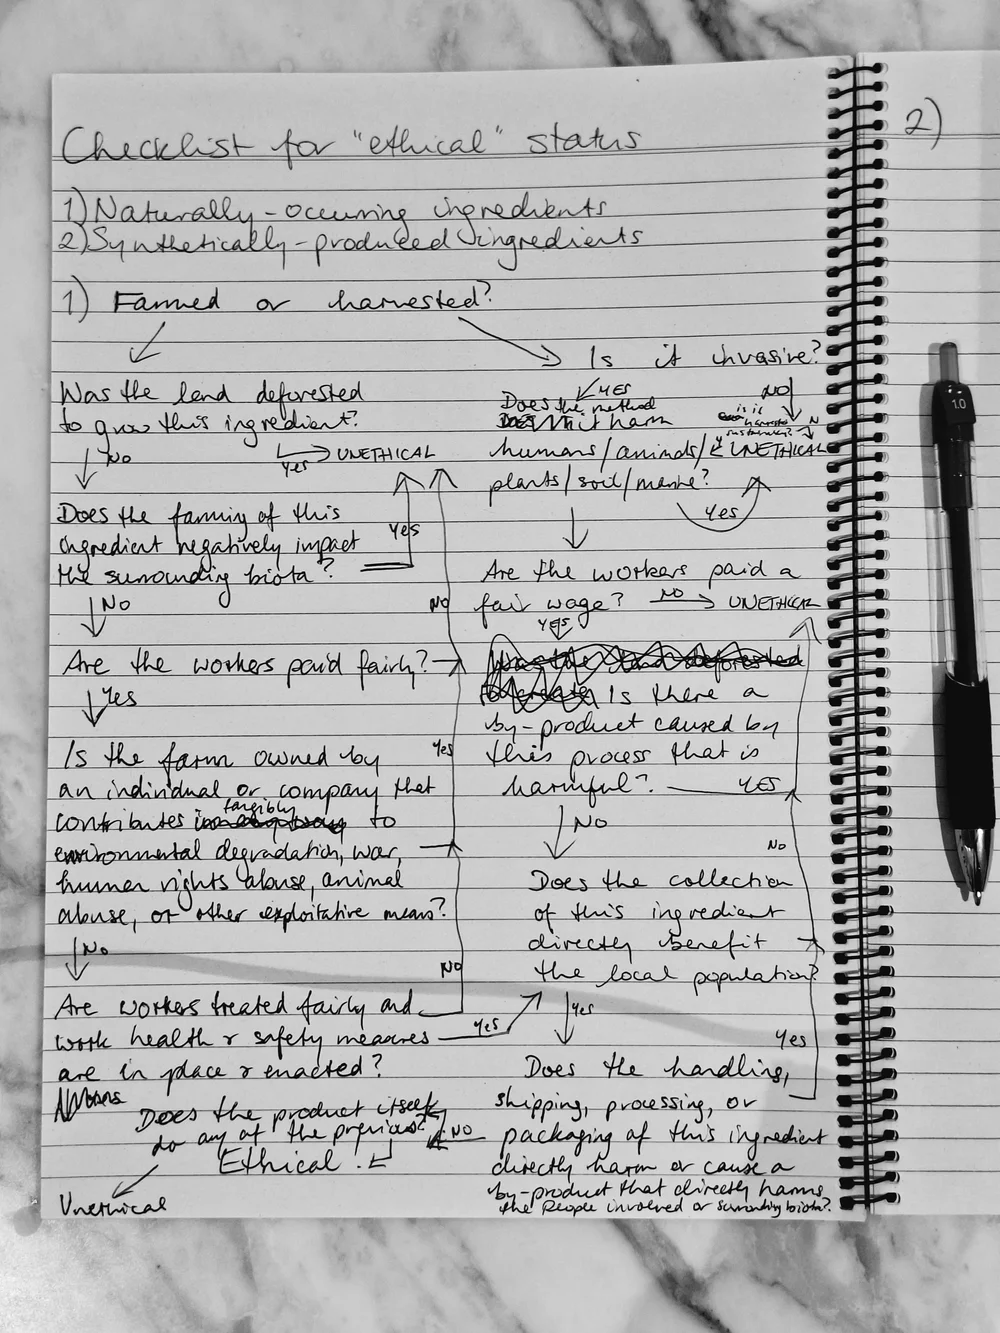 Checklist for "ethical" status
1) Naturally-occuring ingredients
2) Synthetically-produced ingredients
1) Farmed or harvested?
Was the land deforested
to grow this ingredient?
Yes
UNETHICAL
No
Does the farming of this
ingredient negatively impact
the surrounding biota?
Yes
No
Are the workers paid fairly?
No
Yes
Is the farm owned by
an individual or company that
contributes tangibly to
environmental degradation, war,
human rights abuse, animal
abuse, or other exploitative means?
Yes
No
Are workers treated fairly and
work health & safety measures
are in place & enacted?
No
Yes
Is it invasive?
YES
NO
Does the method
harm
humans/animals/
plants/soil/marine?
is it
sustainably?
N
Y
UNETHICAL
Yes
Are the workers paid a
fair wage?
NO
UNETHICAL
YES
Is there a
by-product caused by
this process that is
harmful?
YES
NO
Does the collection
of this ingredient
directly benefit
the local population?
No
yes
Does the handling,
shipping, processing, or
packaging of this ingredient
directly harm or cause a
by-product that directly harms
the people involved or surrounding biota?
Yes
NO
Does the product itself
do any of the previous?
Ethical.
Unethical
2)
1.0